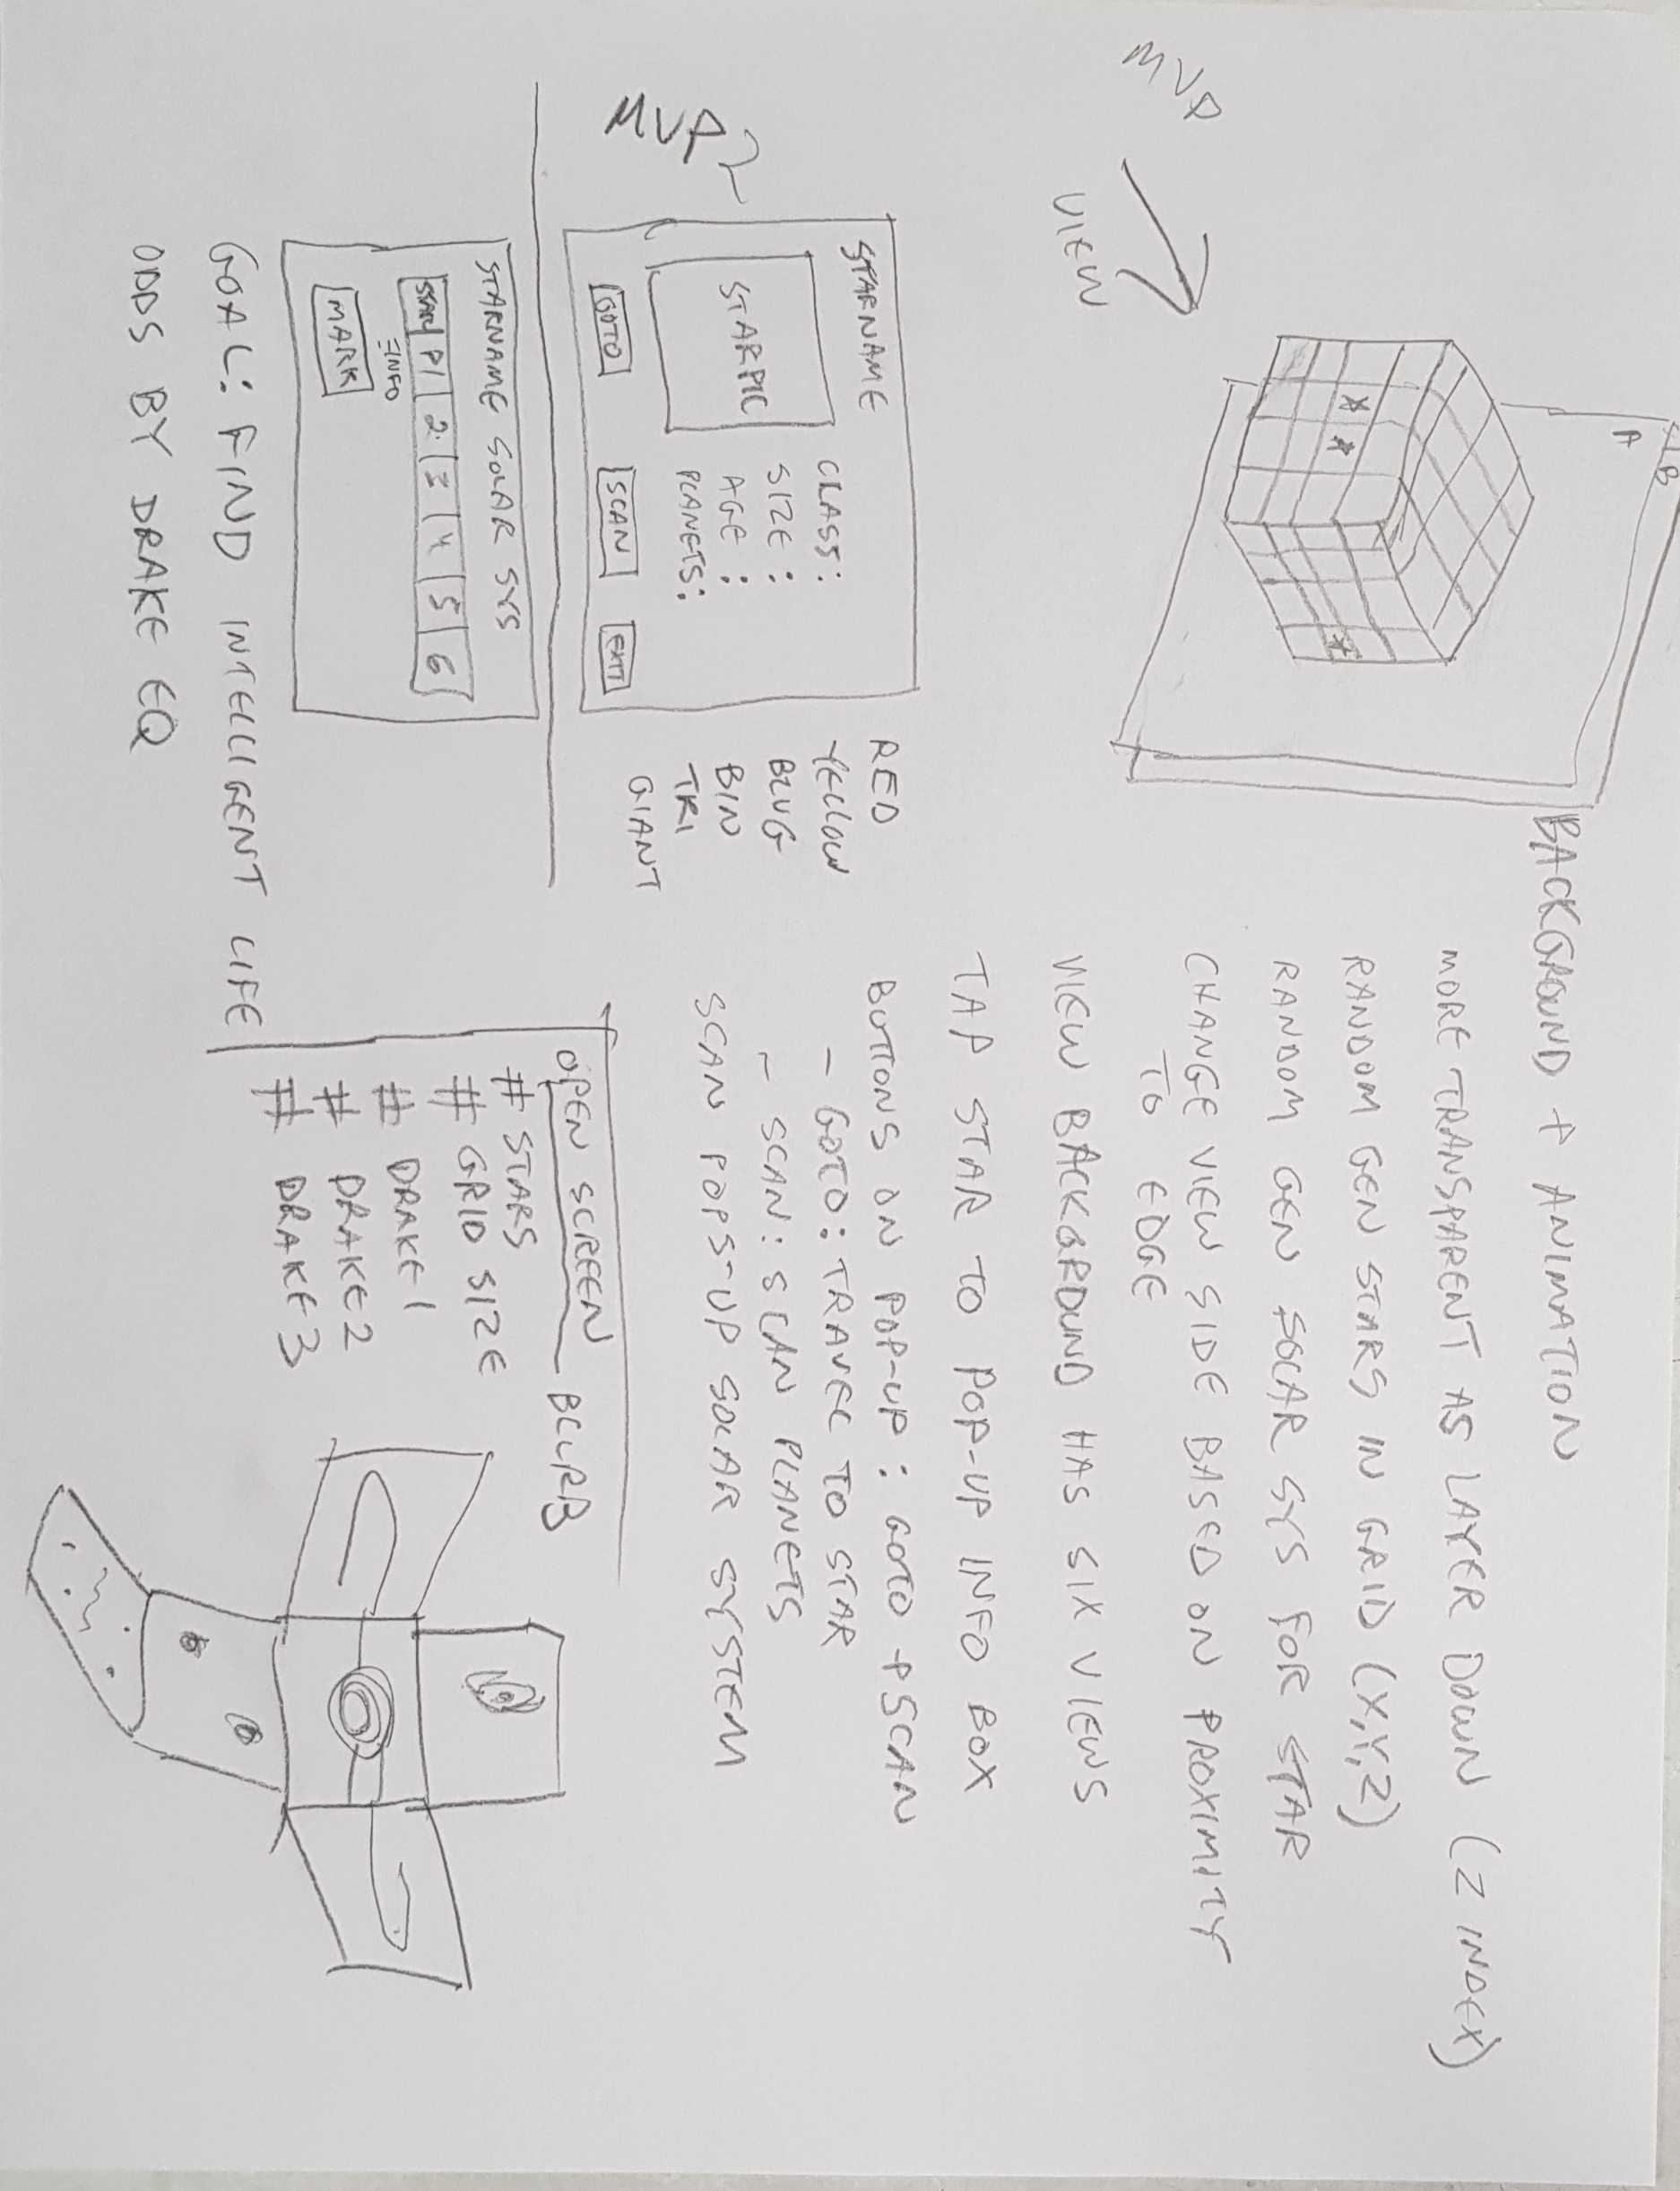 B
A
BACKGROUND + ANIMATION
MORE TRANSPARENT AS LAYER DOWN (Z INDEX)
RANDOM GEN STARS IN GRID (X,Y,Z)
RANDOM GEN SOLAR SYS FOR STAR
CHANGE VIEW SIDE BASED ON PROXIMITY
TO EDGE
VIEW BACKGROUND HAS SIX VIEWS
TAP STAR TO POP-UP INFO BOX
BUTTONS ON POP-UP : GOTO + SCAN
- GOTO: TRAVEL TO STAR
- SCAN: SCAN PLANETS
SCAN POPS-UP SOLAR SYSTEM
MVP
VIEW
MVP 2
STARNAME
STARPIC
CLASS:
SIZE :
AGE :
PLANETS:
GOTO
SCAN
EXIT
RED
YELLOW
BLUE
BIN
TRI
GIANT
STARNAME SOLAR SYS
STAR P1 2 3 4 5 6
INFO
MARK
GOAL: FIND INTELLIGENT LIFE
ODDS BY DRAKE EQ
OPEN SCREEN
# STARS
# GRID SIZE
# DRAKE 1
# DRAKE 2
# DRAKE 3